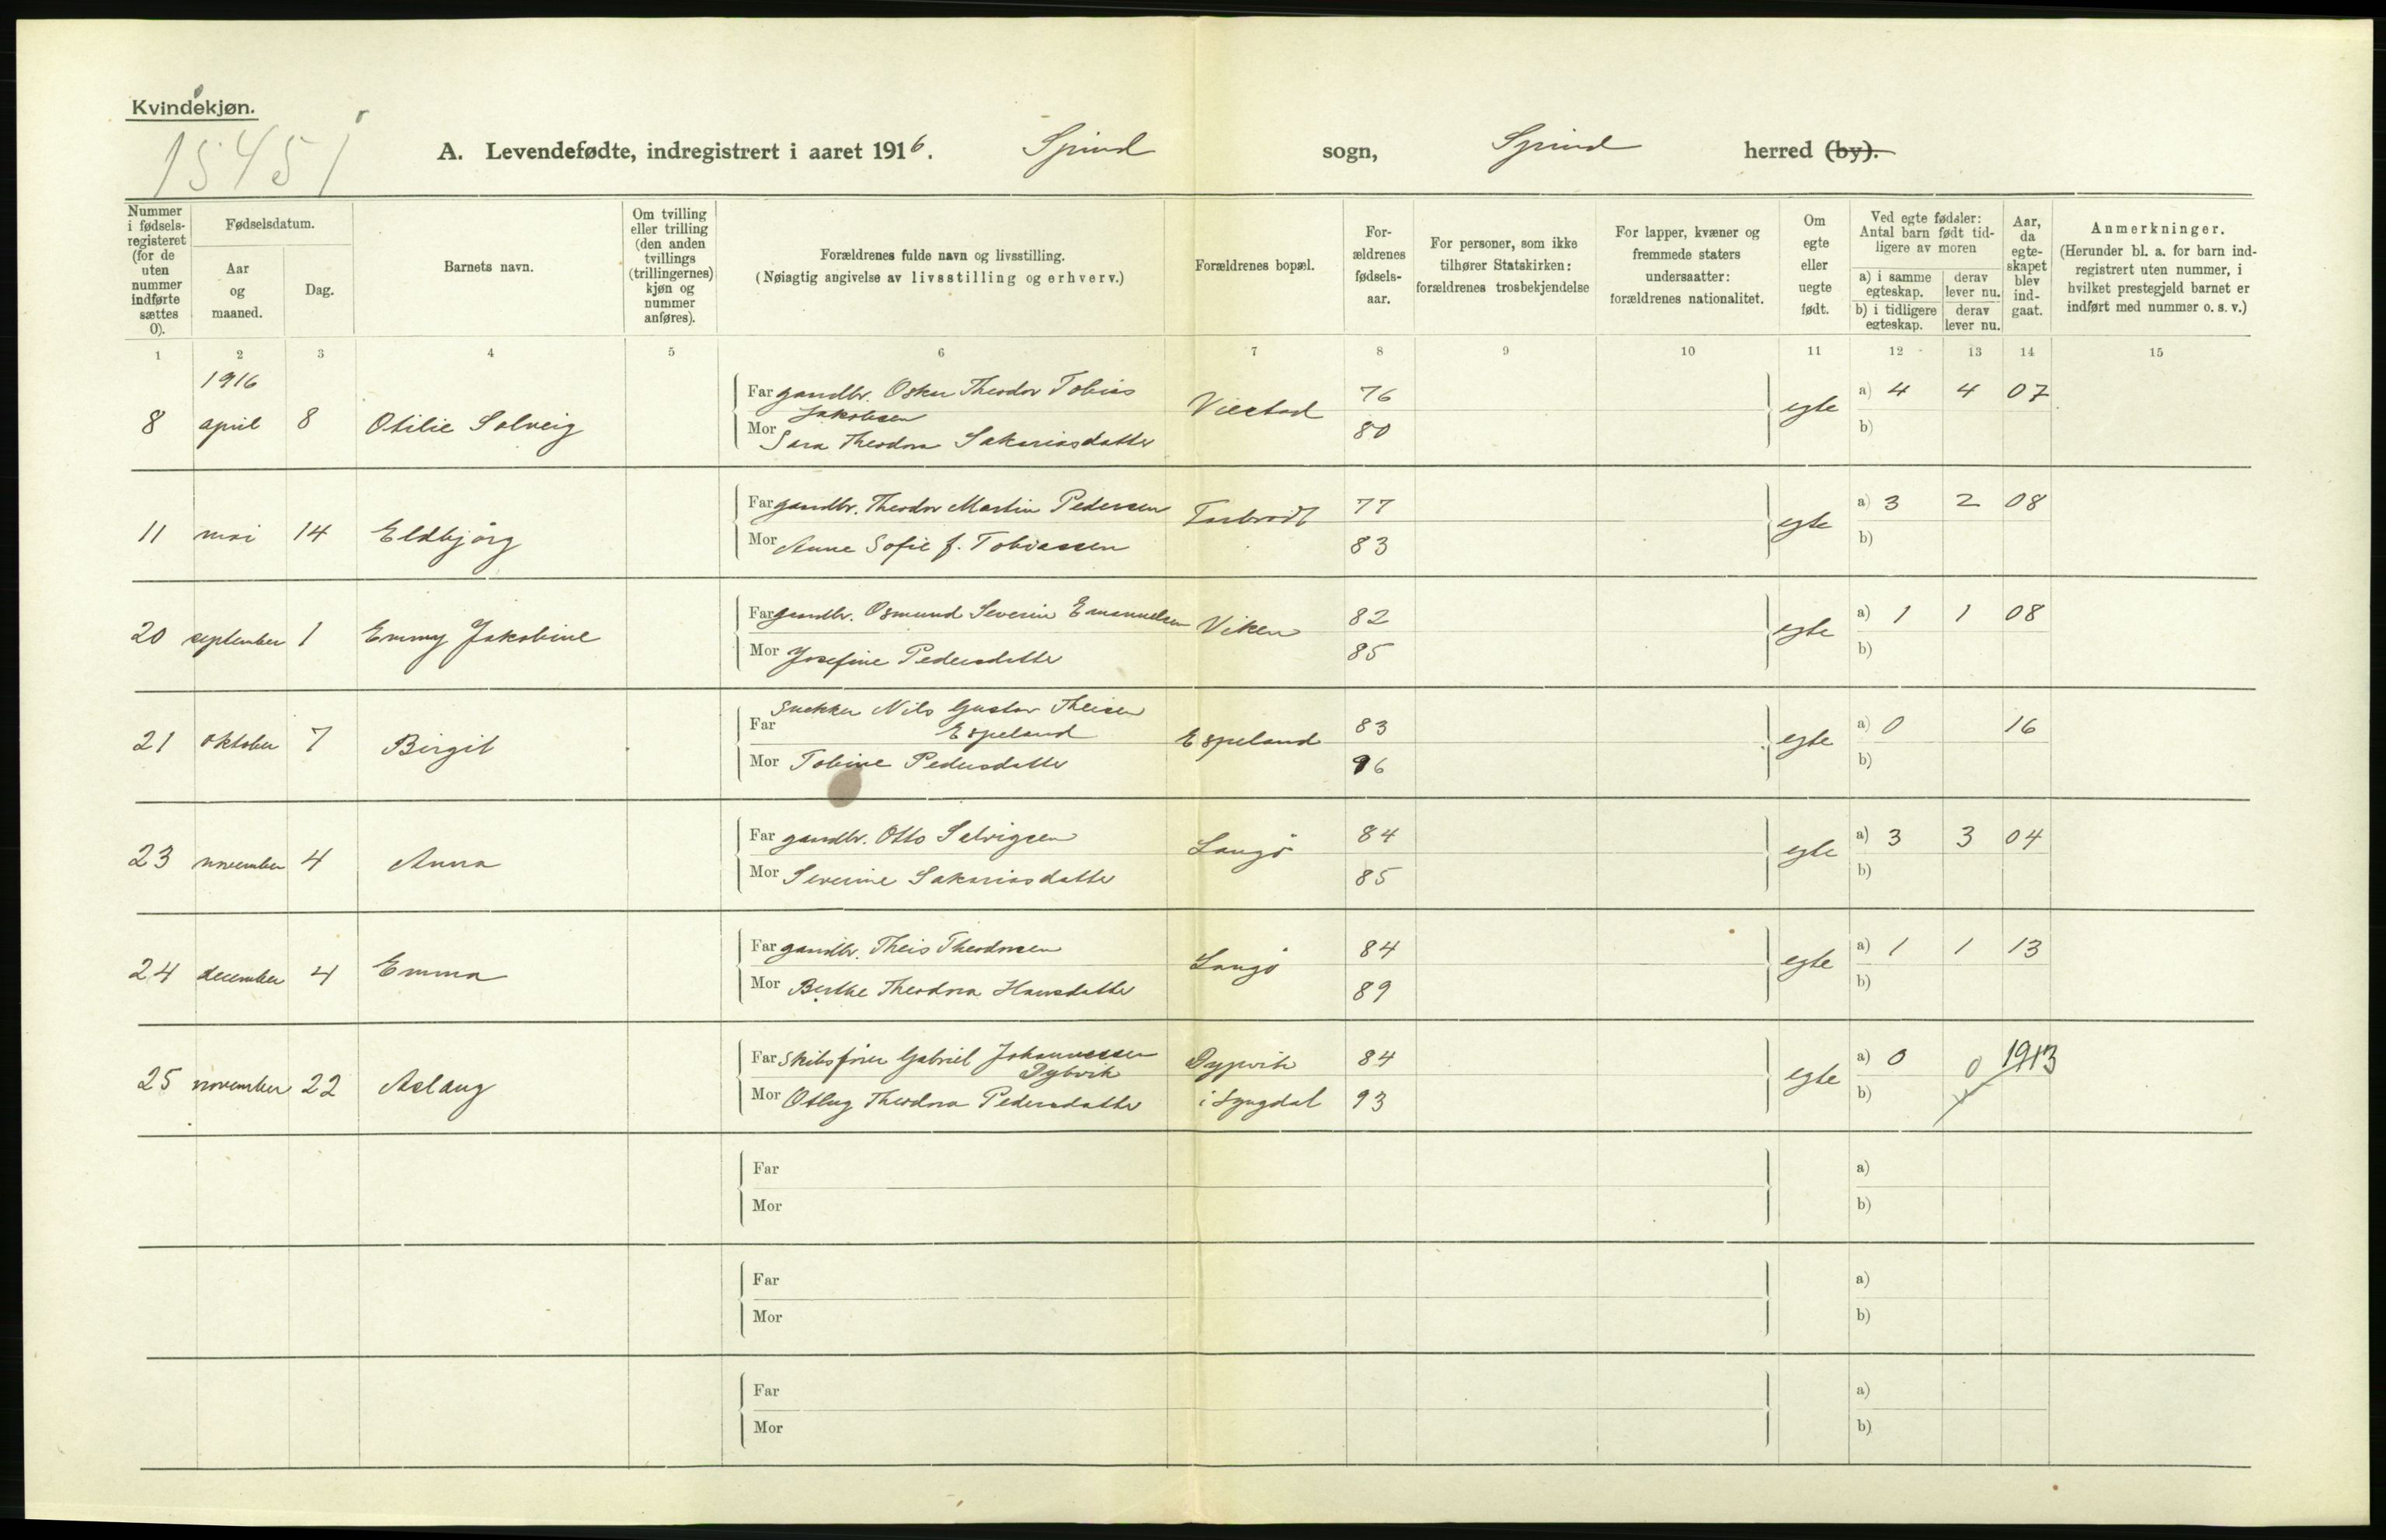 Kvindekjøn.
15451
A. Levendefødte, indregistrert i aaret 1916. Spind sogn, Spind herred (by).
Nummer i fødsels-registeret (for de uten nummer indførte sættes 0).
Fødselsdatum.
Aar og maaned.
Dag.
Barnets navn.
Om tvilling eller trilling (den anden tvillings (trillingernes) kjøn og nummer anføres).
Forældrenes fulde navn og livsstilling.
(Nøiagtig angivelse av livsstilling og erhverv.)
Forældrenes bopæl.
For-ældrenes fødsels-aar.
For personer, som ikke tilhører Statskirken: forældrenes trosbekjendelse
For lapper, kvæner og fremmede staters undersaatter: forældrenes nationalitet.
Om egte eller uegte født.
Ved egte fødsler: Antal barn født tid-ligere av moren
a) i samme egteskap. derav lever nu.
b) i tidligere egteskap. derav lever nu.
Aar, da egte-skapet blev ind-gaat.
Anmerkninger.
(Herunder bl. a. for barn ind-registrert uten nummer, i hvilket prestegjeld barnet er indført med nummer o. s. v.)
1 2 3 4 5 6 7 8 9 10 11 12 13 14 15
1916
8 april 8 Otilie Solveig
Far gaardbr. Oskar Theodor Tobias Jakobsen
Mor Sara Theodora Sakariasdatter
Viestad 76 80 egte a) 4 4 07
b)
11 mai 14 Eldbjørg
Far gaardbr. Theodor Martin Pedersen
Mor Anne Sofie f. Tobiassen
77 83 egte a) 3 2 08
b)
20 september 1 Emmy Jakobine
Far gaardbr. Osmund Severin Emanuelsen
Mor Josefine Pedersdatter
Viken 82 85 egte a) 1 1 08
b)
21 oktober 7 Birgit
Far Snekker Nils Gustav Theisen Espeland
Mor Tobine Pedersdatter
Espeland 83 96 egte a) 0 16
b)
23 november 4 Anna
Far gaardbr. Otto Salvigsen
Mor Severine Sakariasdatter
Langø 84 85 egte a) 3 3 04
b)
24 december 4 Emma
Far gaardbr. Theis Theodorsen
Mor Berthe Theodora Hansdatter
Langø 84 89 egte a) 1 1 13
b)
25 november 22 Aslaug
Far Skibsfører Gabriel Johannessen Dybvik
Mor Otlug Theodora Pedersdatter
Dypvik i Lyngdal 84 93 egte a) 0 0 1913
b)
Far
Mor
a)
b)
Far
Mor
a)
b)
Far
Mor
a)
b)